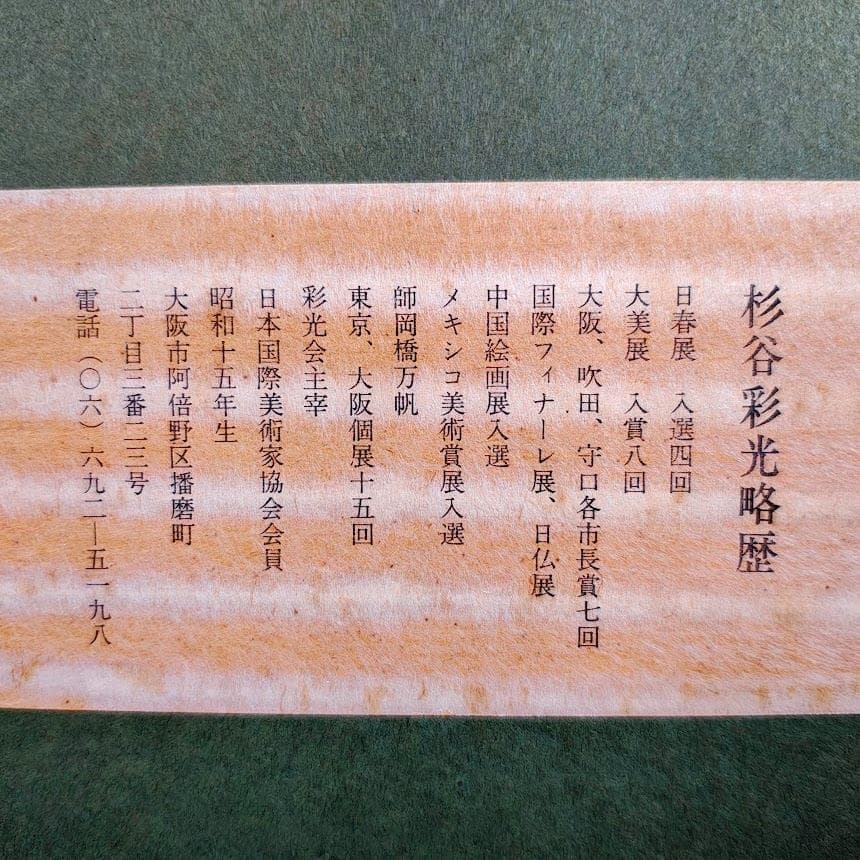 杉谷彩光略歴
日春展　入選四回
大美展　入賞八回
大阪、吹田、守口各市長賞七回
国際フィナーレ展、日仏展
中国絵画展入選
メキシコ美術賞展入選
師岡橋万帆
東京、大阪個展十五回
彩光会主宰
日本国際美術家協会会員
昭和十五年生
大阪市阿倍野区播磨町
二丁目三番二三号
電話（〇六）六九二―五一九八